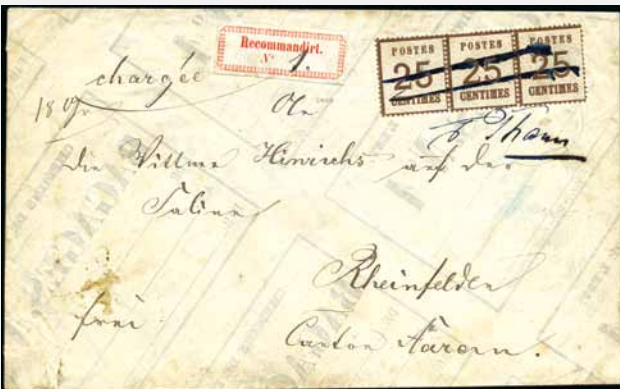 Recommandirt.
N° 1.
POSTES POSTES POSTES
25 25 25
CENTIMES CENTIMES CENTIMES
chargée
An
Thann
die Wittwe Hinrichs auf der
Saline
Rheinfelden
frei
Canton Aarau.